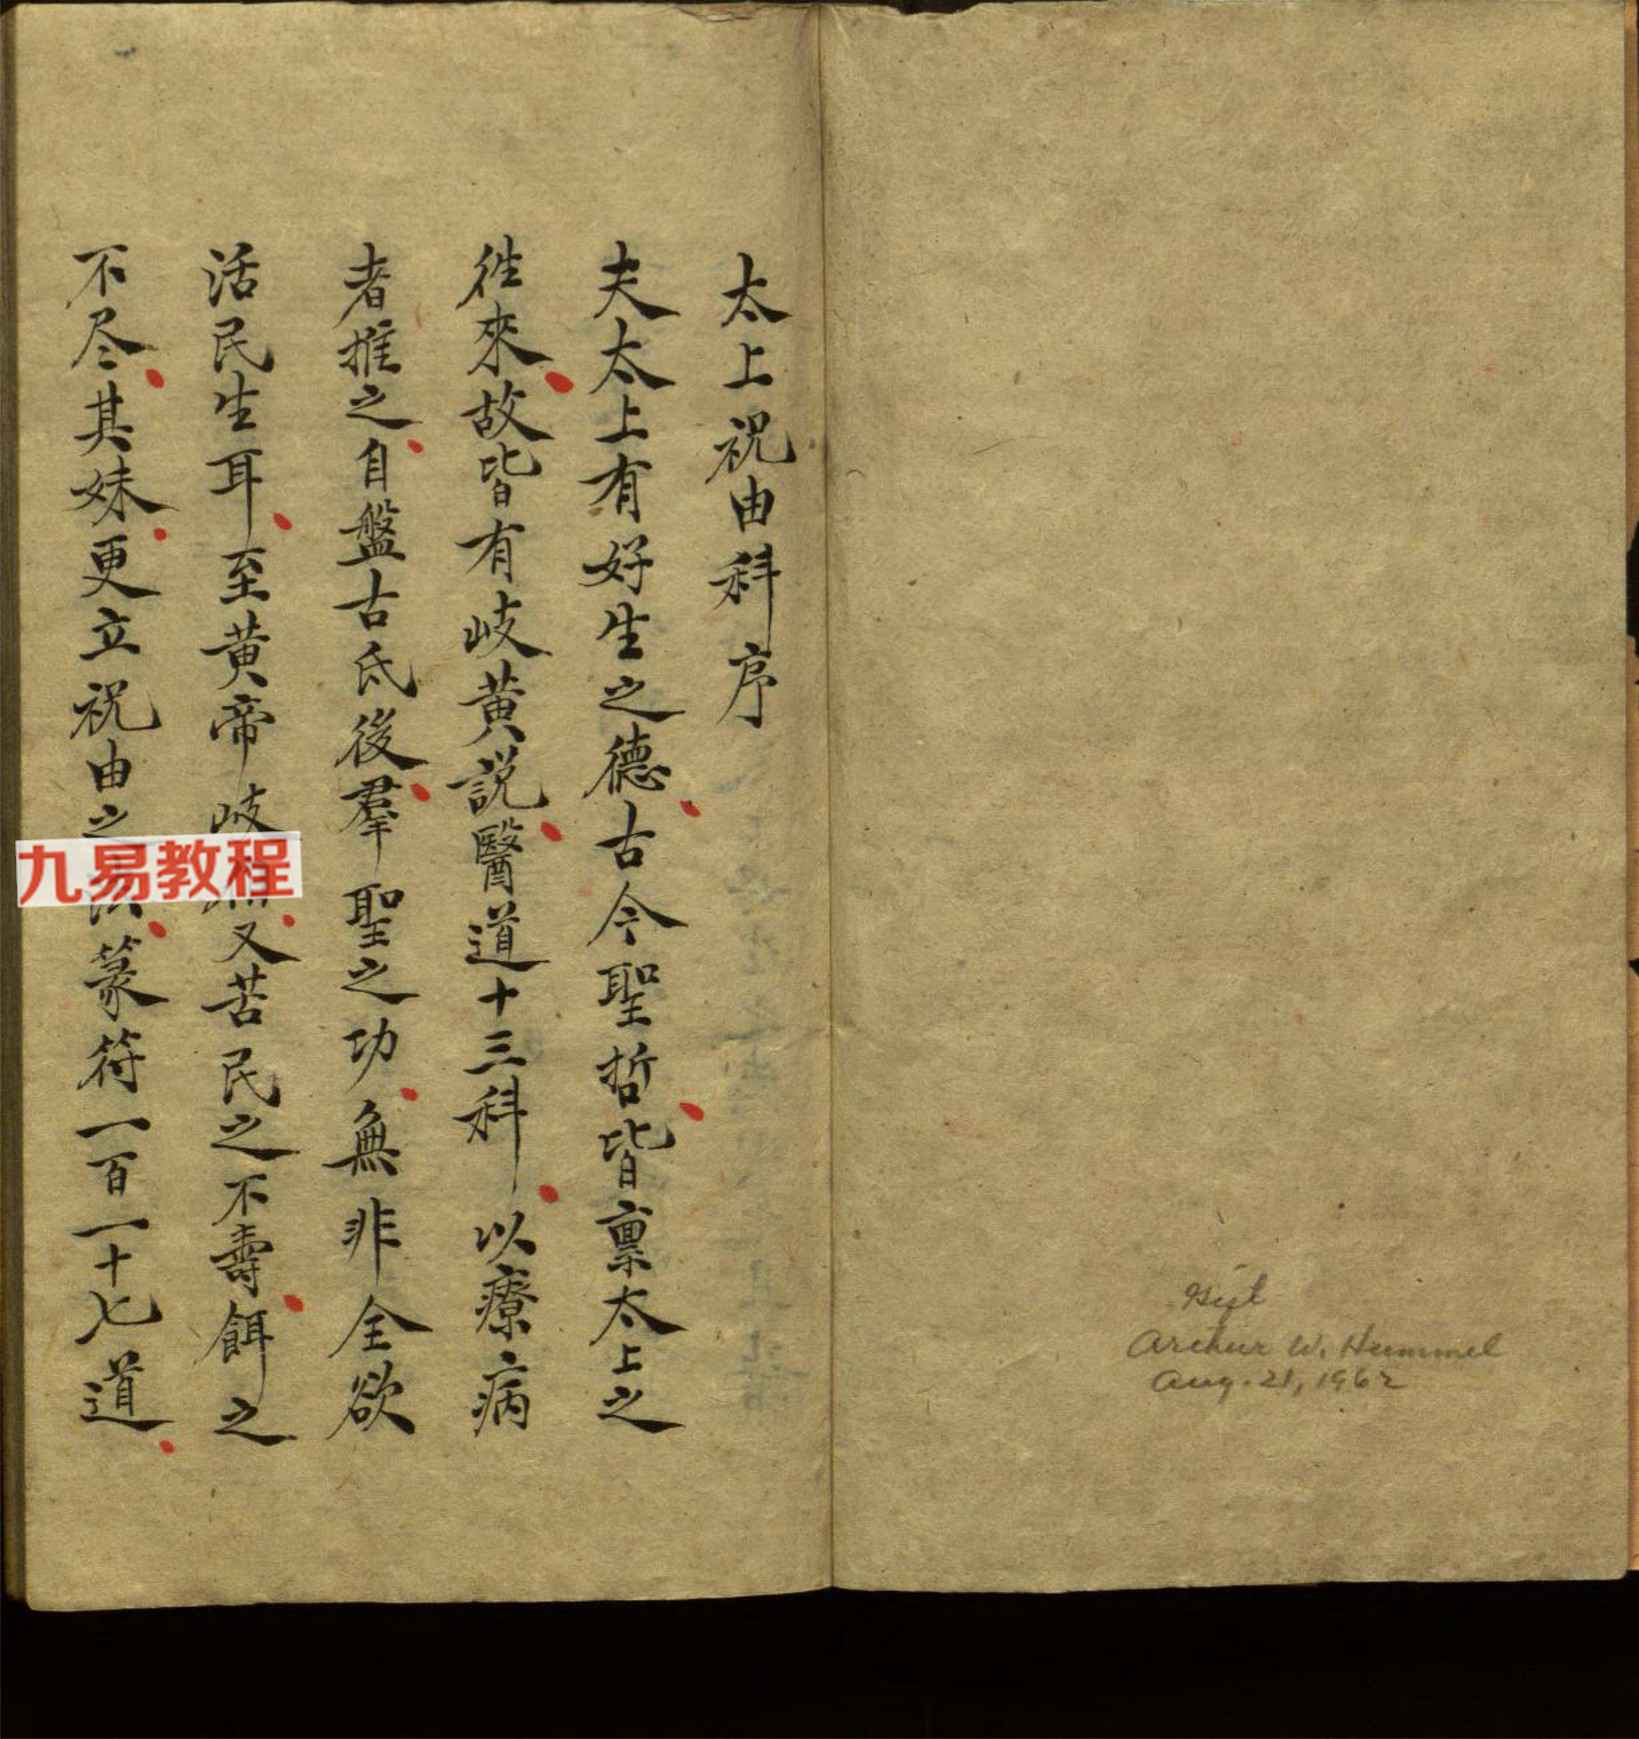 太上祝由科序
夫太上有好生之德古今聖哲皆禀太上之
徃來故皆有岐黄説醫道十三科以療病
者推之自盤古氏後羣聖之功無非全欲
活民生耳至黄帝岐又苦民之不壽餌之
不尽其妹更立祝由之篆符一百一十七道
九易教程
Gift
Arthur W. Hummel
Aug. 21, 1962